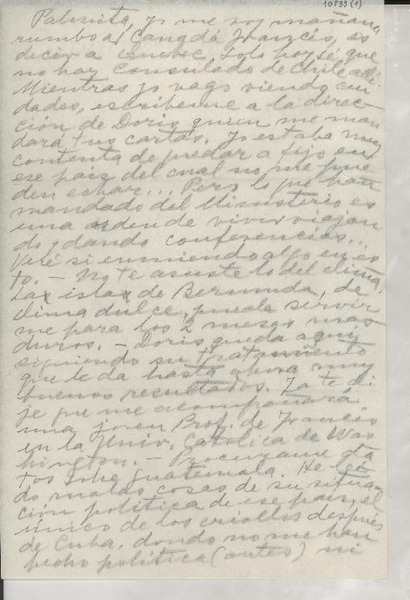 10899 (1)
Palmita, yo me voy mañana
rumbo al Canadá francés, es
decir a Quebec. Solo hoy sé que
no hay Consulado de Chile allí.
Mientras yo vago viendo ciu-
dades, escríbeme a la direc-
ción de Doris quien me man-
dará tus cartas. Yo estaba muy
contenta de quedar a fijo en
ese país del cual no me pue-
den echar... Pero lo que han
mandado del Ministerio es
una orden de vivir viajan-
do, dando conferencias...
Veré si enmiendo algo en es-
to. — No te asuste lo del clima.
La isla de Bermuda, de
clima dulce, puede servir
me para los 2 meses más
duros. — Doris queda aquí
siguiendo su tratamiento
que le da hasta ahora muy
buenos resultados. Ya te di-
je que me acompañará
una joven Prof. de Francés
en la Univ. Católica de Was
hington. — Procúrame da
tos sobre Guatemala. He leí-
do malas cosas de su situa-
ción política de ese país, el
único de los criollos después
de Cuba, donde no me han
hecho política (antes) ni